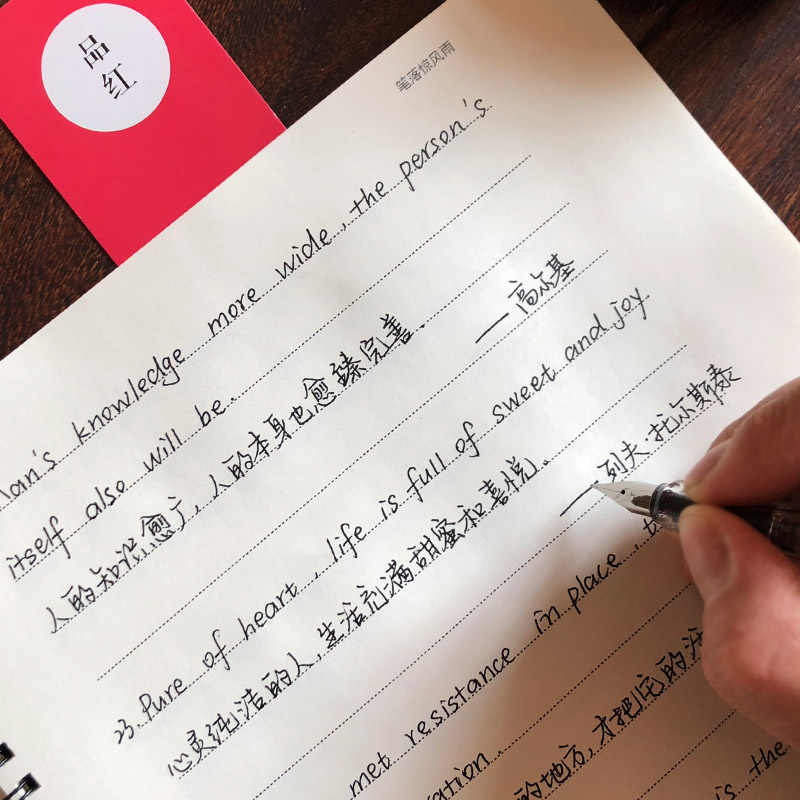 品红
笔落惊风雨
Man's knowledge more wide, the person's
itself also will be.
人的知识愈广,人的本身也愈臻完善。
— 高尔基
23. Pure of heart, life is full of sweet and joy.
心灵纯洁的人,生活充满甜蜜和喜悦。
— 列夫.托尔斯泰
met resistance in place,
的地方,才把它的活
is the